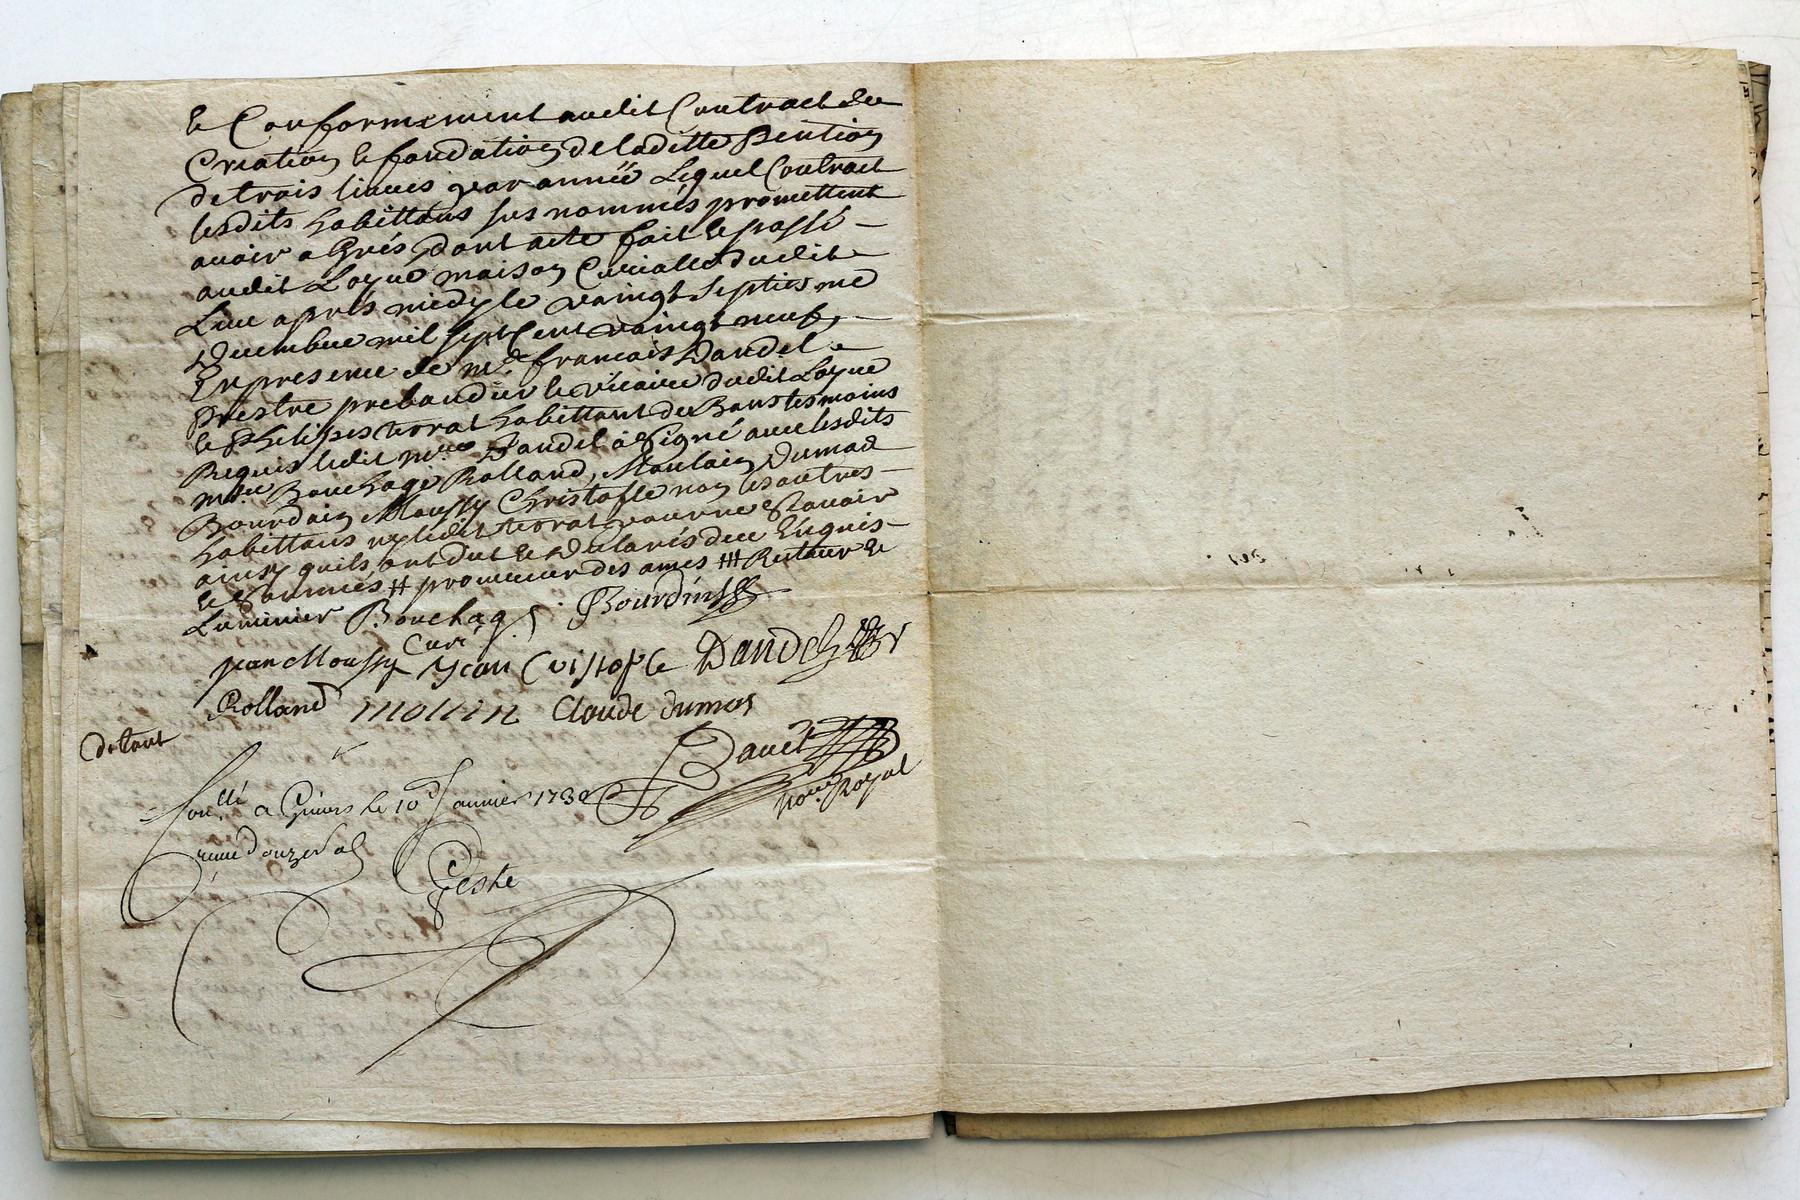 & Conformement audit Contract de
Creation & fondation de laditte Pention
de trois livres par année Lequel Contract
lesdits habittans sus nommés promettent
avoir agrés dont acte fait & passé
audit Loyre maison Curialle dudit
Lieu apres midy le vaingt septiesme
Decembre mil sept Cent vaingt neuf,
En presence de mre francois Dandel
prestre prebandier & vicaire dudit Loyre
& Phelipes terrat habittant de tesmoins
Requis ledit mre Dandel à signé avec lesdits
mre Bouchage Rolland, Moulain Dumas
Bourdain Moussy Christofle non les autres
habittans ny ledit terrat pour ne sçavoir
ainsy quils ont dit & declarés de ce Enquis
& Sommés # procureur des ames ## Recteur &
Luminier Bouchage Bourdin
Curé
jean Moussy Jean Cristofle Dandel
Rolland molin Claude dumas
Davet
Nore Royal
Conllé a Givors le 10e Janvier 1730
Reçu douze sols
Geste